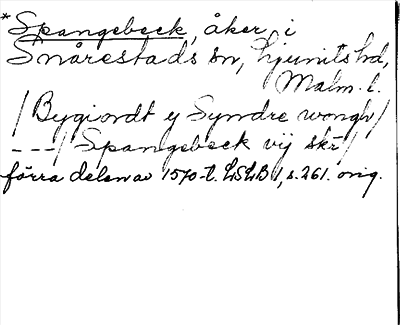 *Spangebeck, åker i
Snårestads sn, Ljunits hd,
Malm. l.
/Bygiordt y Syndre wongh/
---/ Spangebeck vij skr/
förra delen av 1570-t. LSLB 1, s. 261. orig.